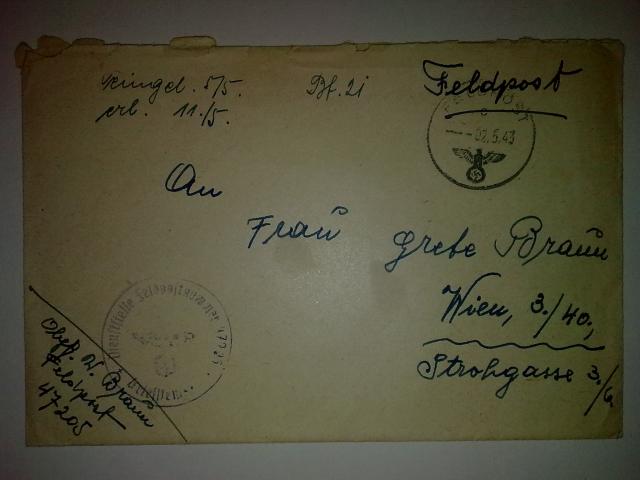 eingel. 5/5.
erl. 11./5.
Bf. 21
Feldpost
02.5.43
An
Frau Grete Braun
Wien, 3./40.,
Strohgasse 3./6.
Dienststelle Feldpostnummer
W. Braun
Feldpost
47205